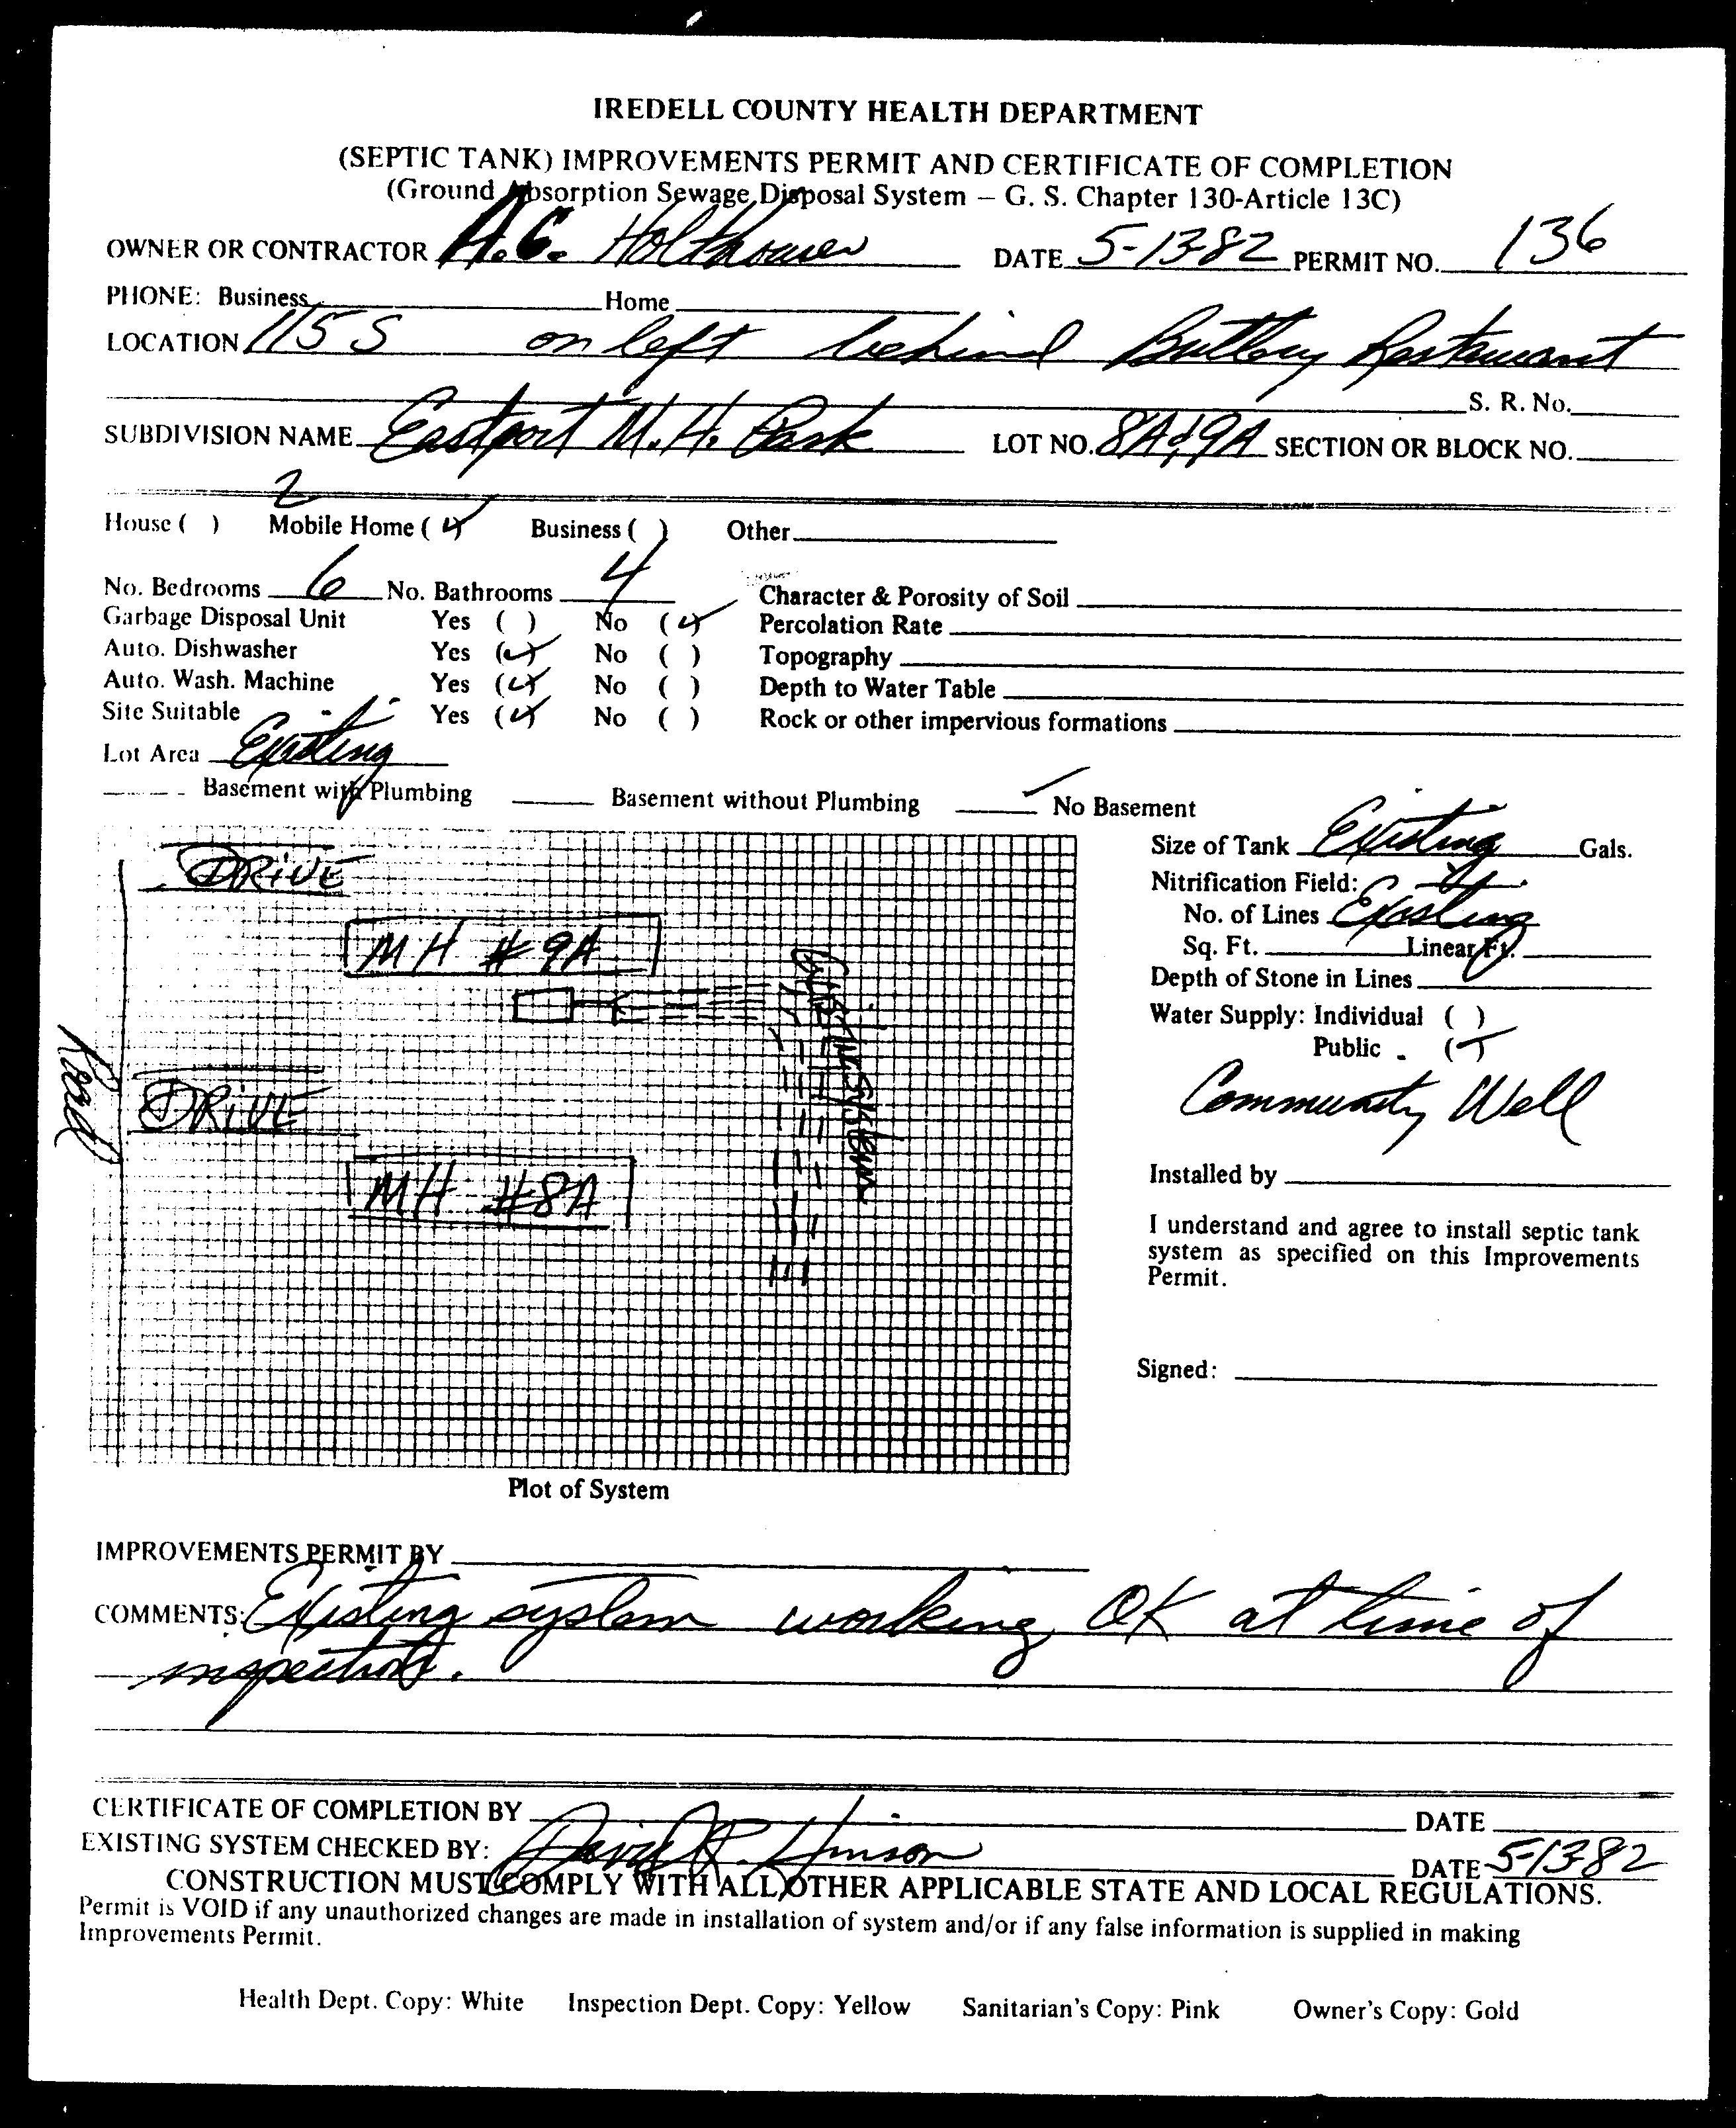 IREDELL COUNTY HEALTH DEPARTMENT
(SEPTIC TANK) IMPROVEMENTS PERMIT AND CERTIFICATE OF COMPLETION
(Ground Absorption Sewage Disposal System – G. S. Chapter 130-Article 13C)
OWNER OR CONTRACTOR A.C. Holthouser DATE 5-13-82 PERMIT NO. 136
PHONE: Business Home
LOCATION 115 S on left behind Buttery Restaurant
S. R. No.
SUBDIVISION NAME Eastport M.H. Park LOT NO. 8A & 9A SECTION OR BLOCK NO.
2
House ( ) Mobile Home (✓) Business ( ) Other
No. Bedrooms 6 No. Bathrooms 4 Character & Porosity of Soil
Garbage Disposal Unit Yes ( ) No (✓) Percolation Rate
Auto. Dishwasher Yes (✓) No ( ) Topography
Auto. Wash. Machine Yes (✓) No ( ) Depth to Water Table
Site Suitable Yes (✓) No ( ) Rock or other impervious formations
Lot Area Existing
Basement with Plumbing Basement without Plumbing ✓ No Basement
Size of Tank Existing Gals.
Nitrification Field:
No. of Lines Existing
Sq. Ft. Linear Ft.
Depth of Stone in Lines
Water Supply: Individual ( )
Public (✓)
Community Well
Installed by
I understand and agree to install septic tank
system as specified on this Improvements
Permit.
Signed:
DRIVE
MH #9A
System
Road
DRIVE
MH #8A
Plot of System
IMPROVEMENTS PERMIT BY
COMMENTS: Existing system working OK at time of
inspection.
CERTIFICATE OF COMPLETION BY DATE
EXISTING SYSTEM CHECKED BY: David R. Hinson DATE 5-13-82
CONSTRUCTION MUST COMPLY WITH ALL OTHER APPLICABLE STATE AND LOCAL REGULATIONS.
Permit is VOID if any unauthorized changes are made in installation of system and/or if any false information is supplied in making
Improvements Permit.
Health Dept. Copy: White Inspection Dept. Copy: Yellow Sanitarian's Copy: Pink Owner's Copy: Gold